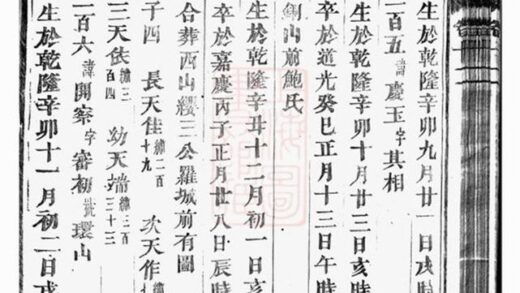 生於乾隆辛卯九月廿一日戌時
一百五諱慶玉字其相
生於乾隆辛卯十月廿三日亥時
卒於道光癸巳正月十三日午時
山前鮑氏
生於乾隆辛丑十二月初一日亥時
卒於嘉慶丙子正月廿八日辰時
合葬西山纓三公羅城前有圖
子四 長天佳二百十九 次天作
三天依三百四 幼天端三百三十三
一百六諱開察字審初號環山
生於乾隆辛卯十一月初二日戌